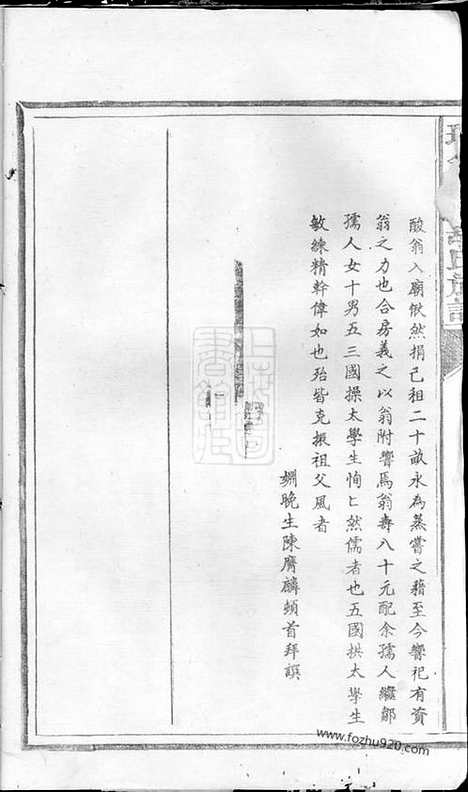 酸翁入廟愀然捐己租二十畝永為蒸嘗之藉至今響祀有資
翁之力也合房義之以翁附響焉翁壽八十元配余孺人繼鄒
孺人女十男五三國操太學生恂匕然儒者也五國拱太學生
敏練精幹偉如也殆皆克振祖父風者
姻晚生陳膺麟頓首拜譔
www.fozhu920.com